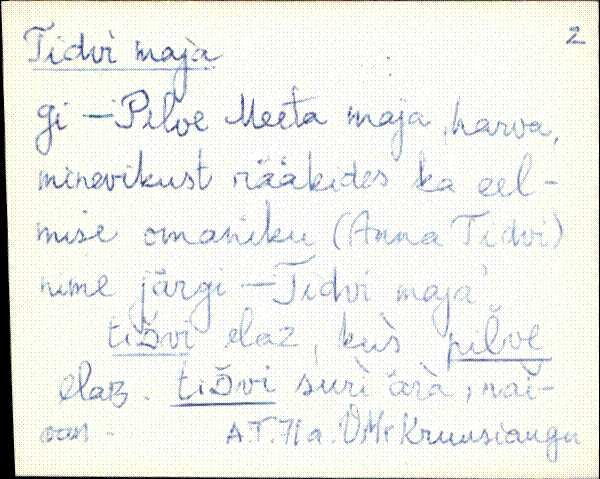 2
Tidvi maja
gi – Pilve Meeta maja, harva,
minevikust rääkides ka eel-
mise omaniku (Anna Tidvi)
nime järgi – Tidvi maja
elaz, kus pilve
elaʙ. suri ärà, nai-
A.T. 71 a. Kruusiaugu